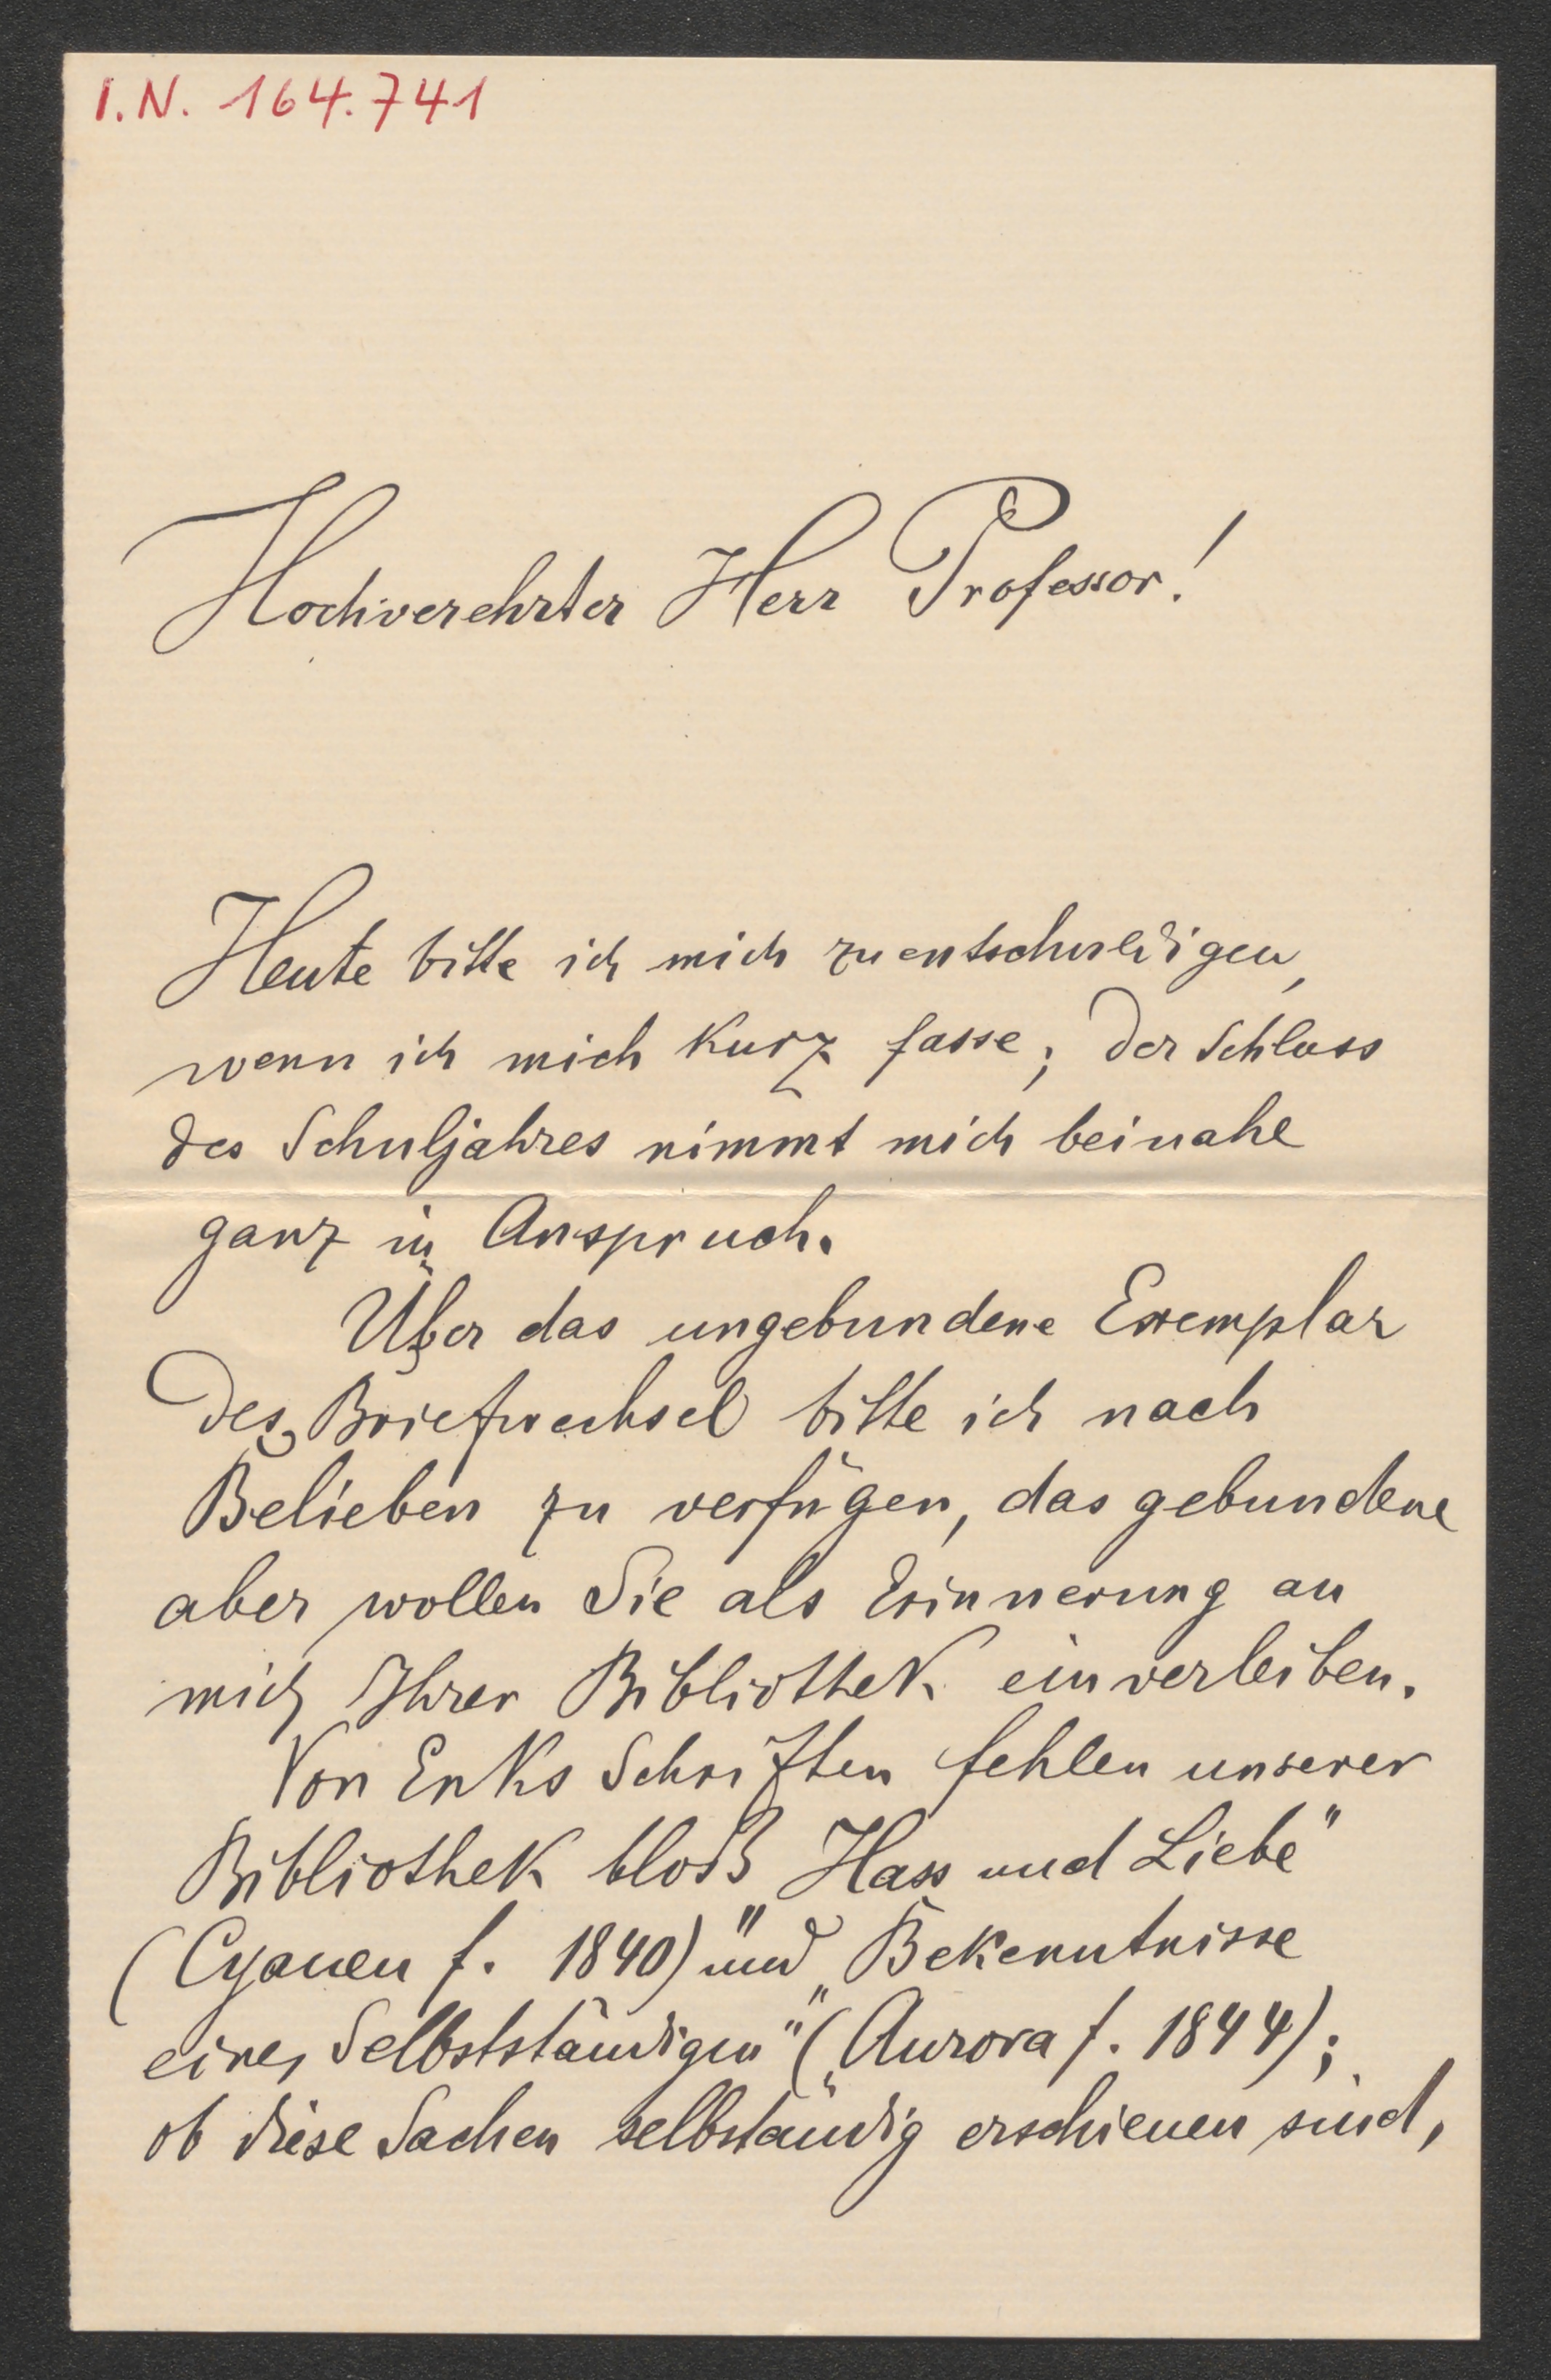 I.N. 164.741
Hochverehrter Herr Professor!
Heute bitte ich mich zu entschuldigen,
wenn ich mich kurz fasse; der Schluss
des Schuljahres nimmt mich beinahe
ganz in Anspruch.
Über das ungebundene Exemplar
des Briefwechsel bitte ich nach
Belieben zu verfügen, das gebundene
aber wollen Sie als Erinnerung an
mich Ihrer Bibliothek einverleiben.
Von Enks Schriften fehlen unserer
Bibliothek bloß „Hass und Liebe"
(Cyanen f. 1840) und „Bekenntnisse
eines Selbstständigen" („Aurora f. 1844);
ob diese Sachen selbständig erschienen sind,